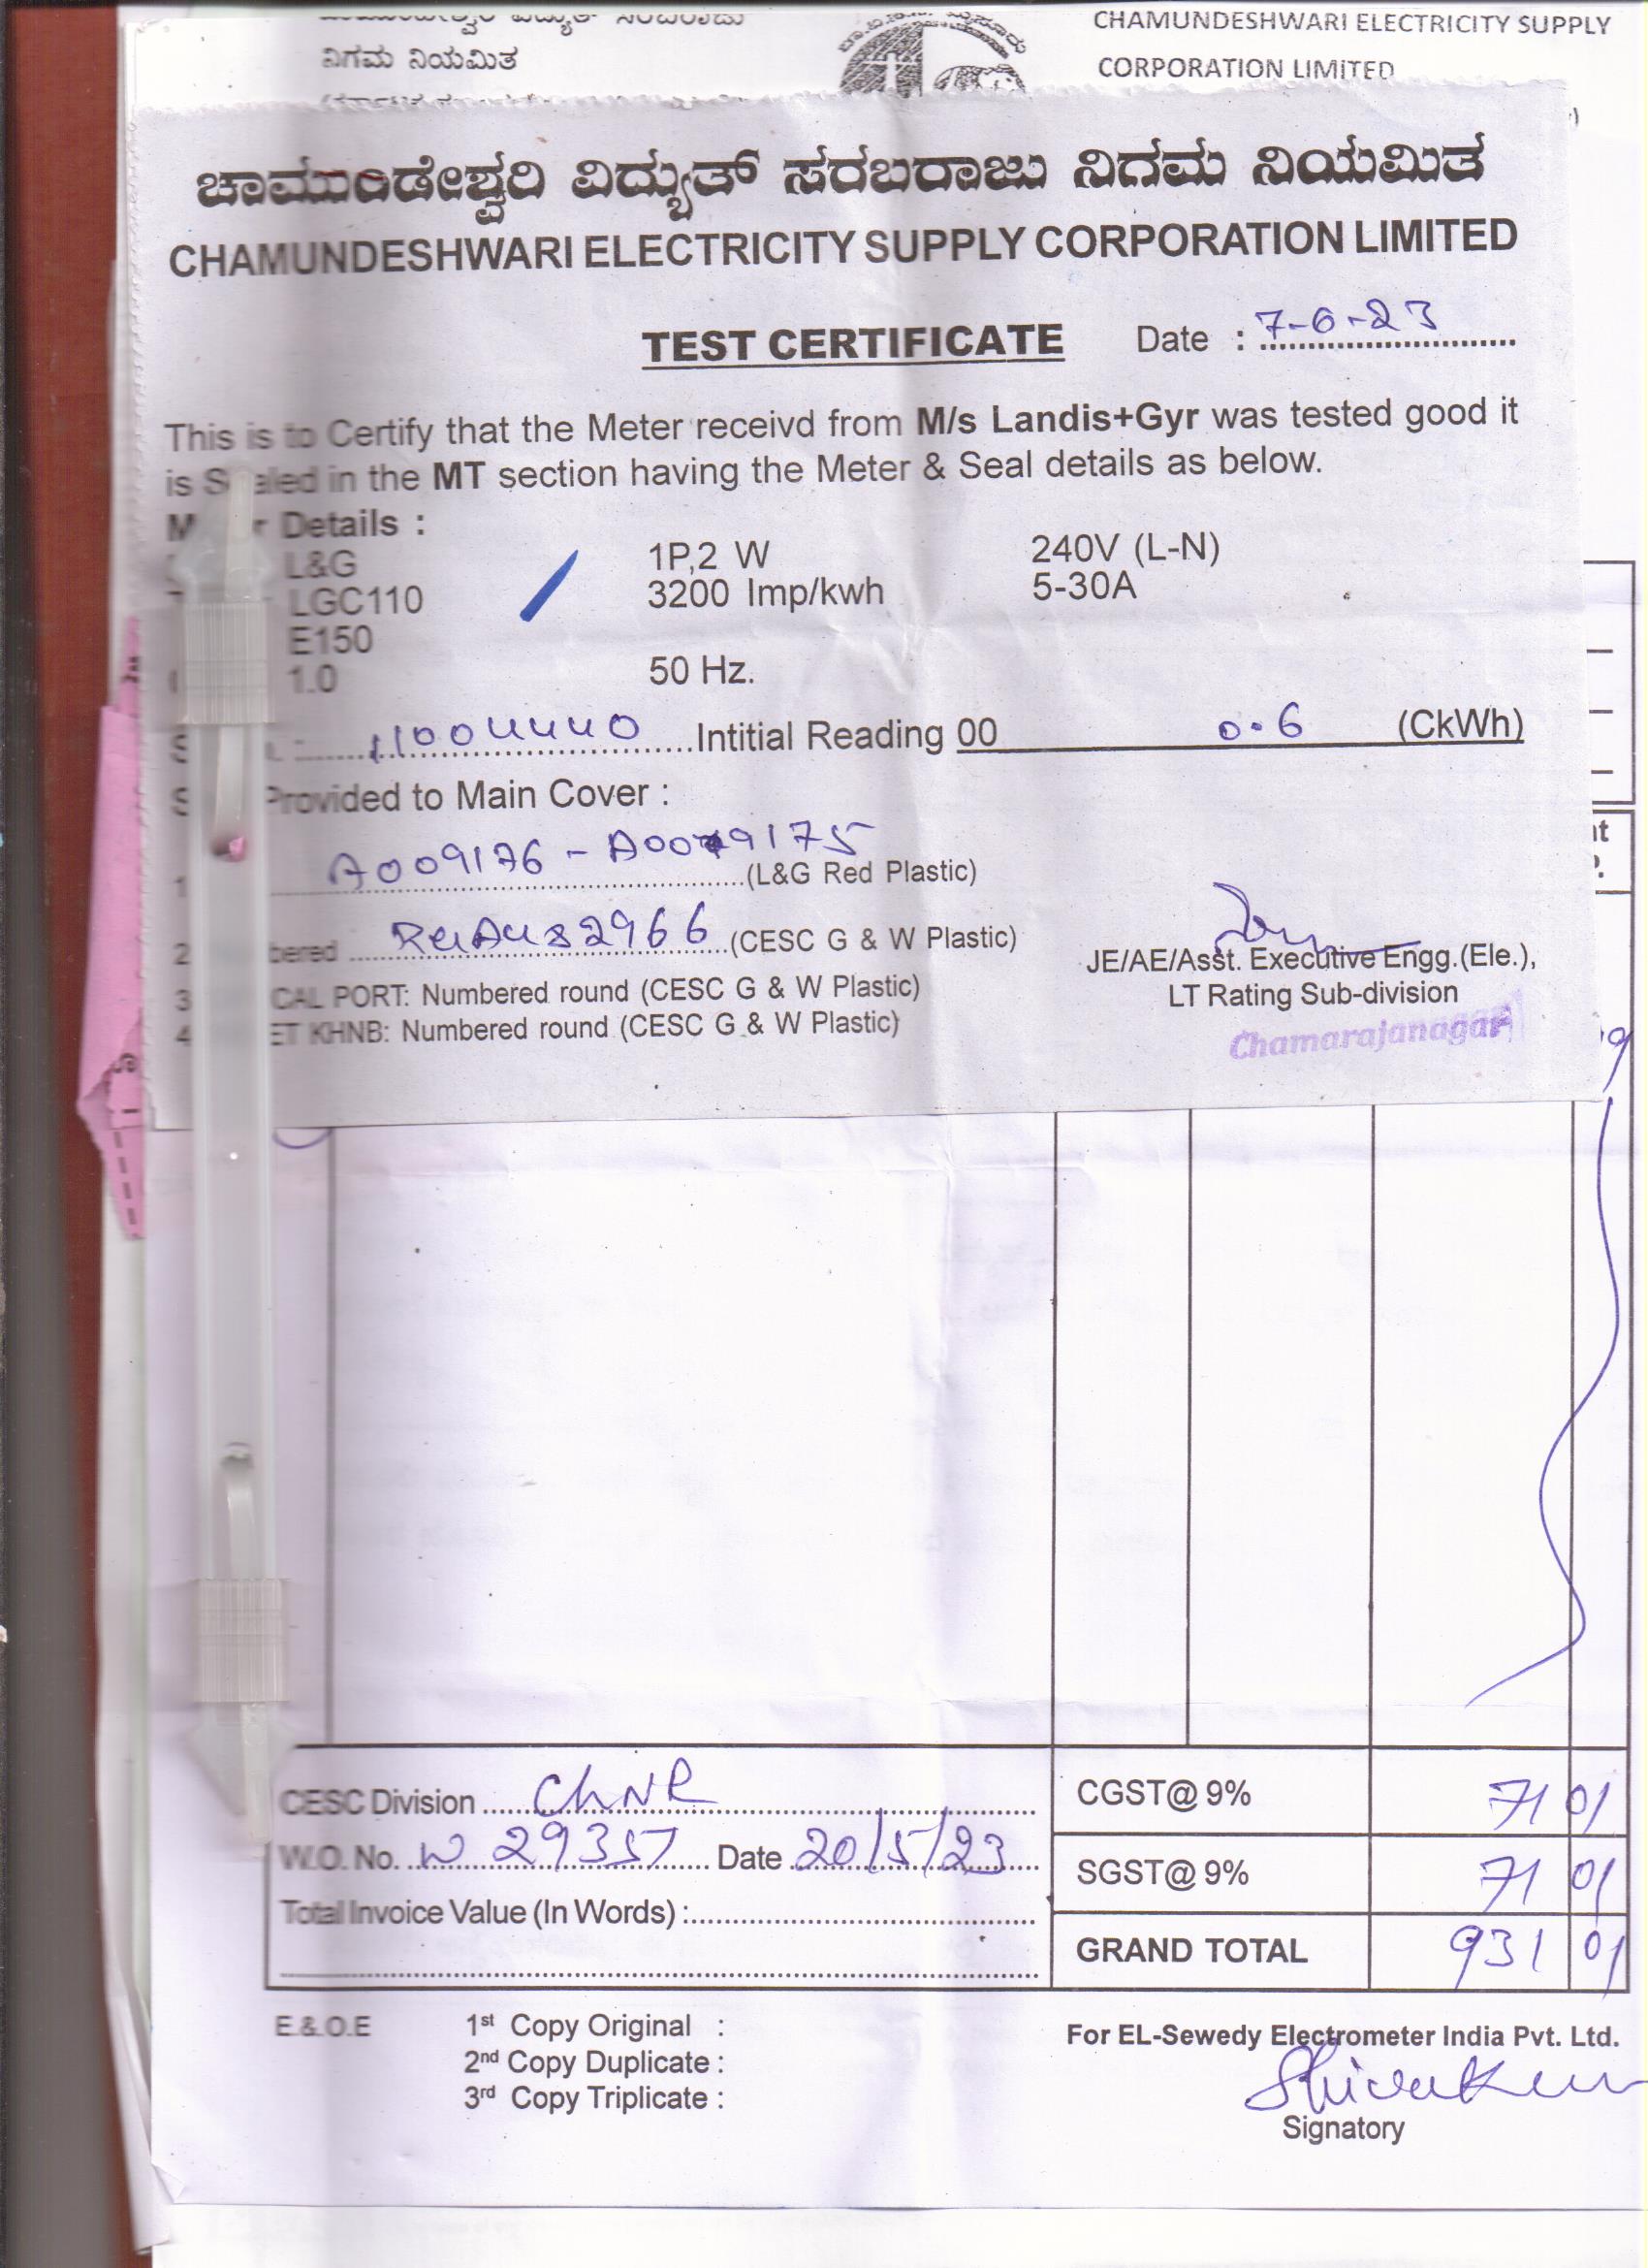 ನಿಗಮ ನಿಯಮಿತ
CHAMUNDESHWARI ELECTRICITY SUPPLY
CORPORATION LIMITED
ಚಾಮುಂಡೇಶ್ವರಿ ವಿದ್ಯುತ್ ಸರಬರಾಜು ನಿಗಮ ನಿಯಮಿತ
CHAMUNDESHWARI ELECTRICITY SUPPLY CORPORATION LIMITED
TEST CERTIFICATE Date : 7-6-23
This is to Certify that the Meter receivd from M/s Landis+Gyr was tested good it
is Sealed in the MT section having the Meter & Seal details as below.
Details :
L&G 1P,2 W 240V (L-N)
LGC110 3200 Imp/kwh 5-30A
E150
1.0 50 Hz.
11004440 Intitial Reading 00 0.6 (CkWh)
Provided to Main Cover :
1 A009176 - A009175 (L&G Red Plastic)
2 (CESC G & W Plastic)
JE/AE/Asst. Executive Engg.(Ele.),
3 CAL PORT: Numbered round (CESC G & W Plastic)
LT Rating Sub-division
4 ET KHNB: Numbered round (CESC G & W Plastic)
Chamarajanagar
CESC Division ChNR CGST@ 9% 71 01
W.O. No. W 29357 Date 20/5/23 SGST@ 9% 71 01
Total Invoice Value (In Words) :
GRAND TOTAL 931 01
E.& O.E 1st Copy Original :
For EL-Sewedy Electrometer India Pvt. Ltd.
2nd Copy Duplicate :
3rd Copy Triplicate :
Signatory